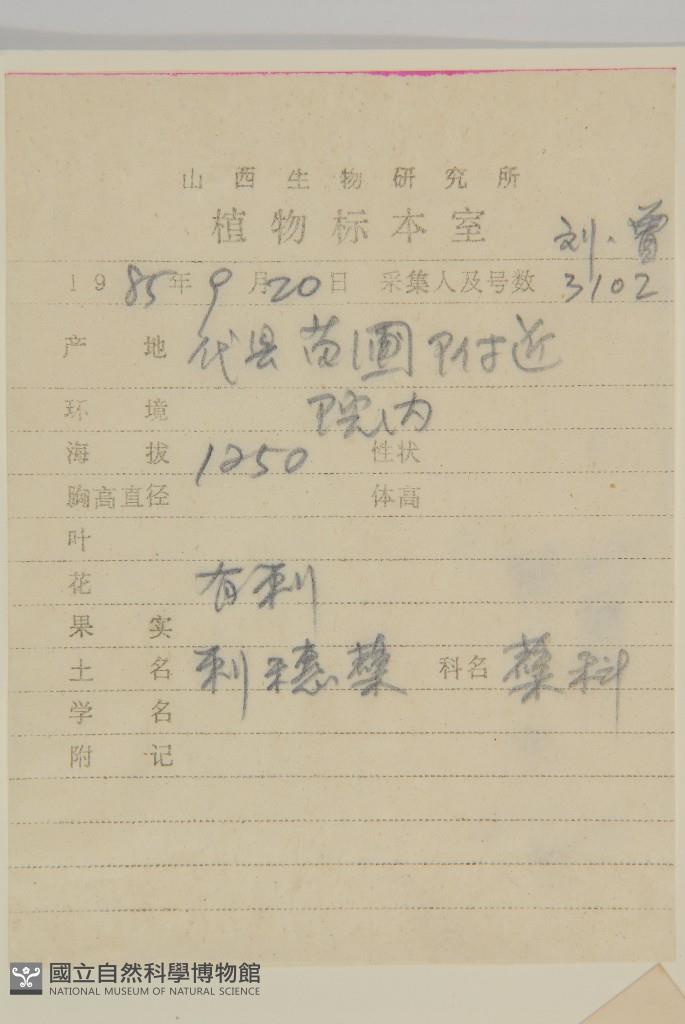 山西生物研究所
植物标本室
刘.曾
1985年9月20日 采集人及号数 3102
产地 代县苗圃附近
环境 院内
海拔 1250 性状
胸高直径 体高
叶
花 有刺
果实
土名 刺穗藜 科名 藜科
学名
附记
國立自然科學博物館
NATIONAL MUSEUM OF NATURAL SCIENCE